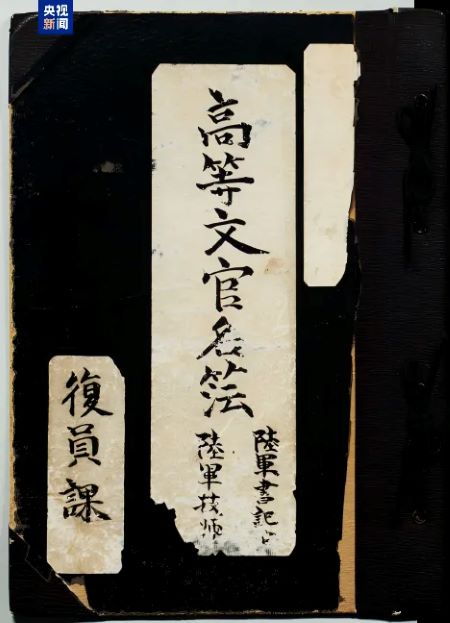 央视
新闻
高等文官名簿
陸軍書記
陸軍技師
復員課